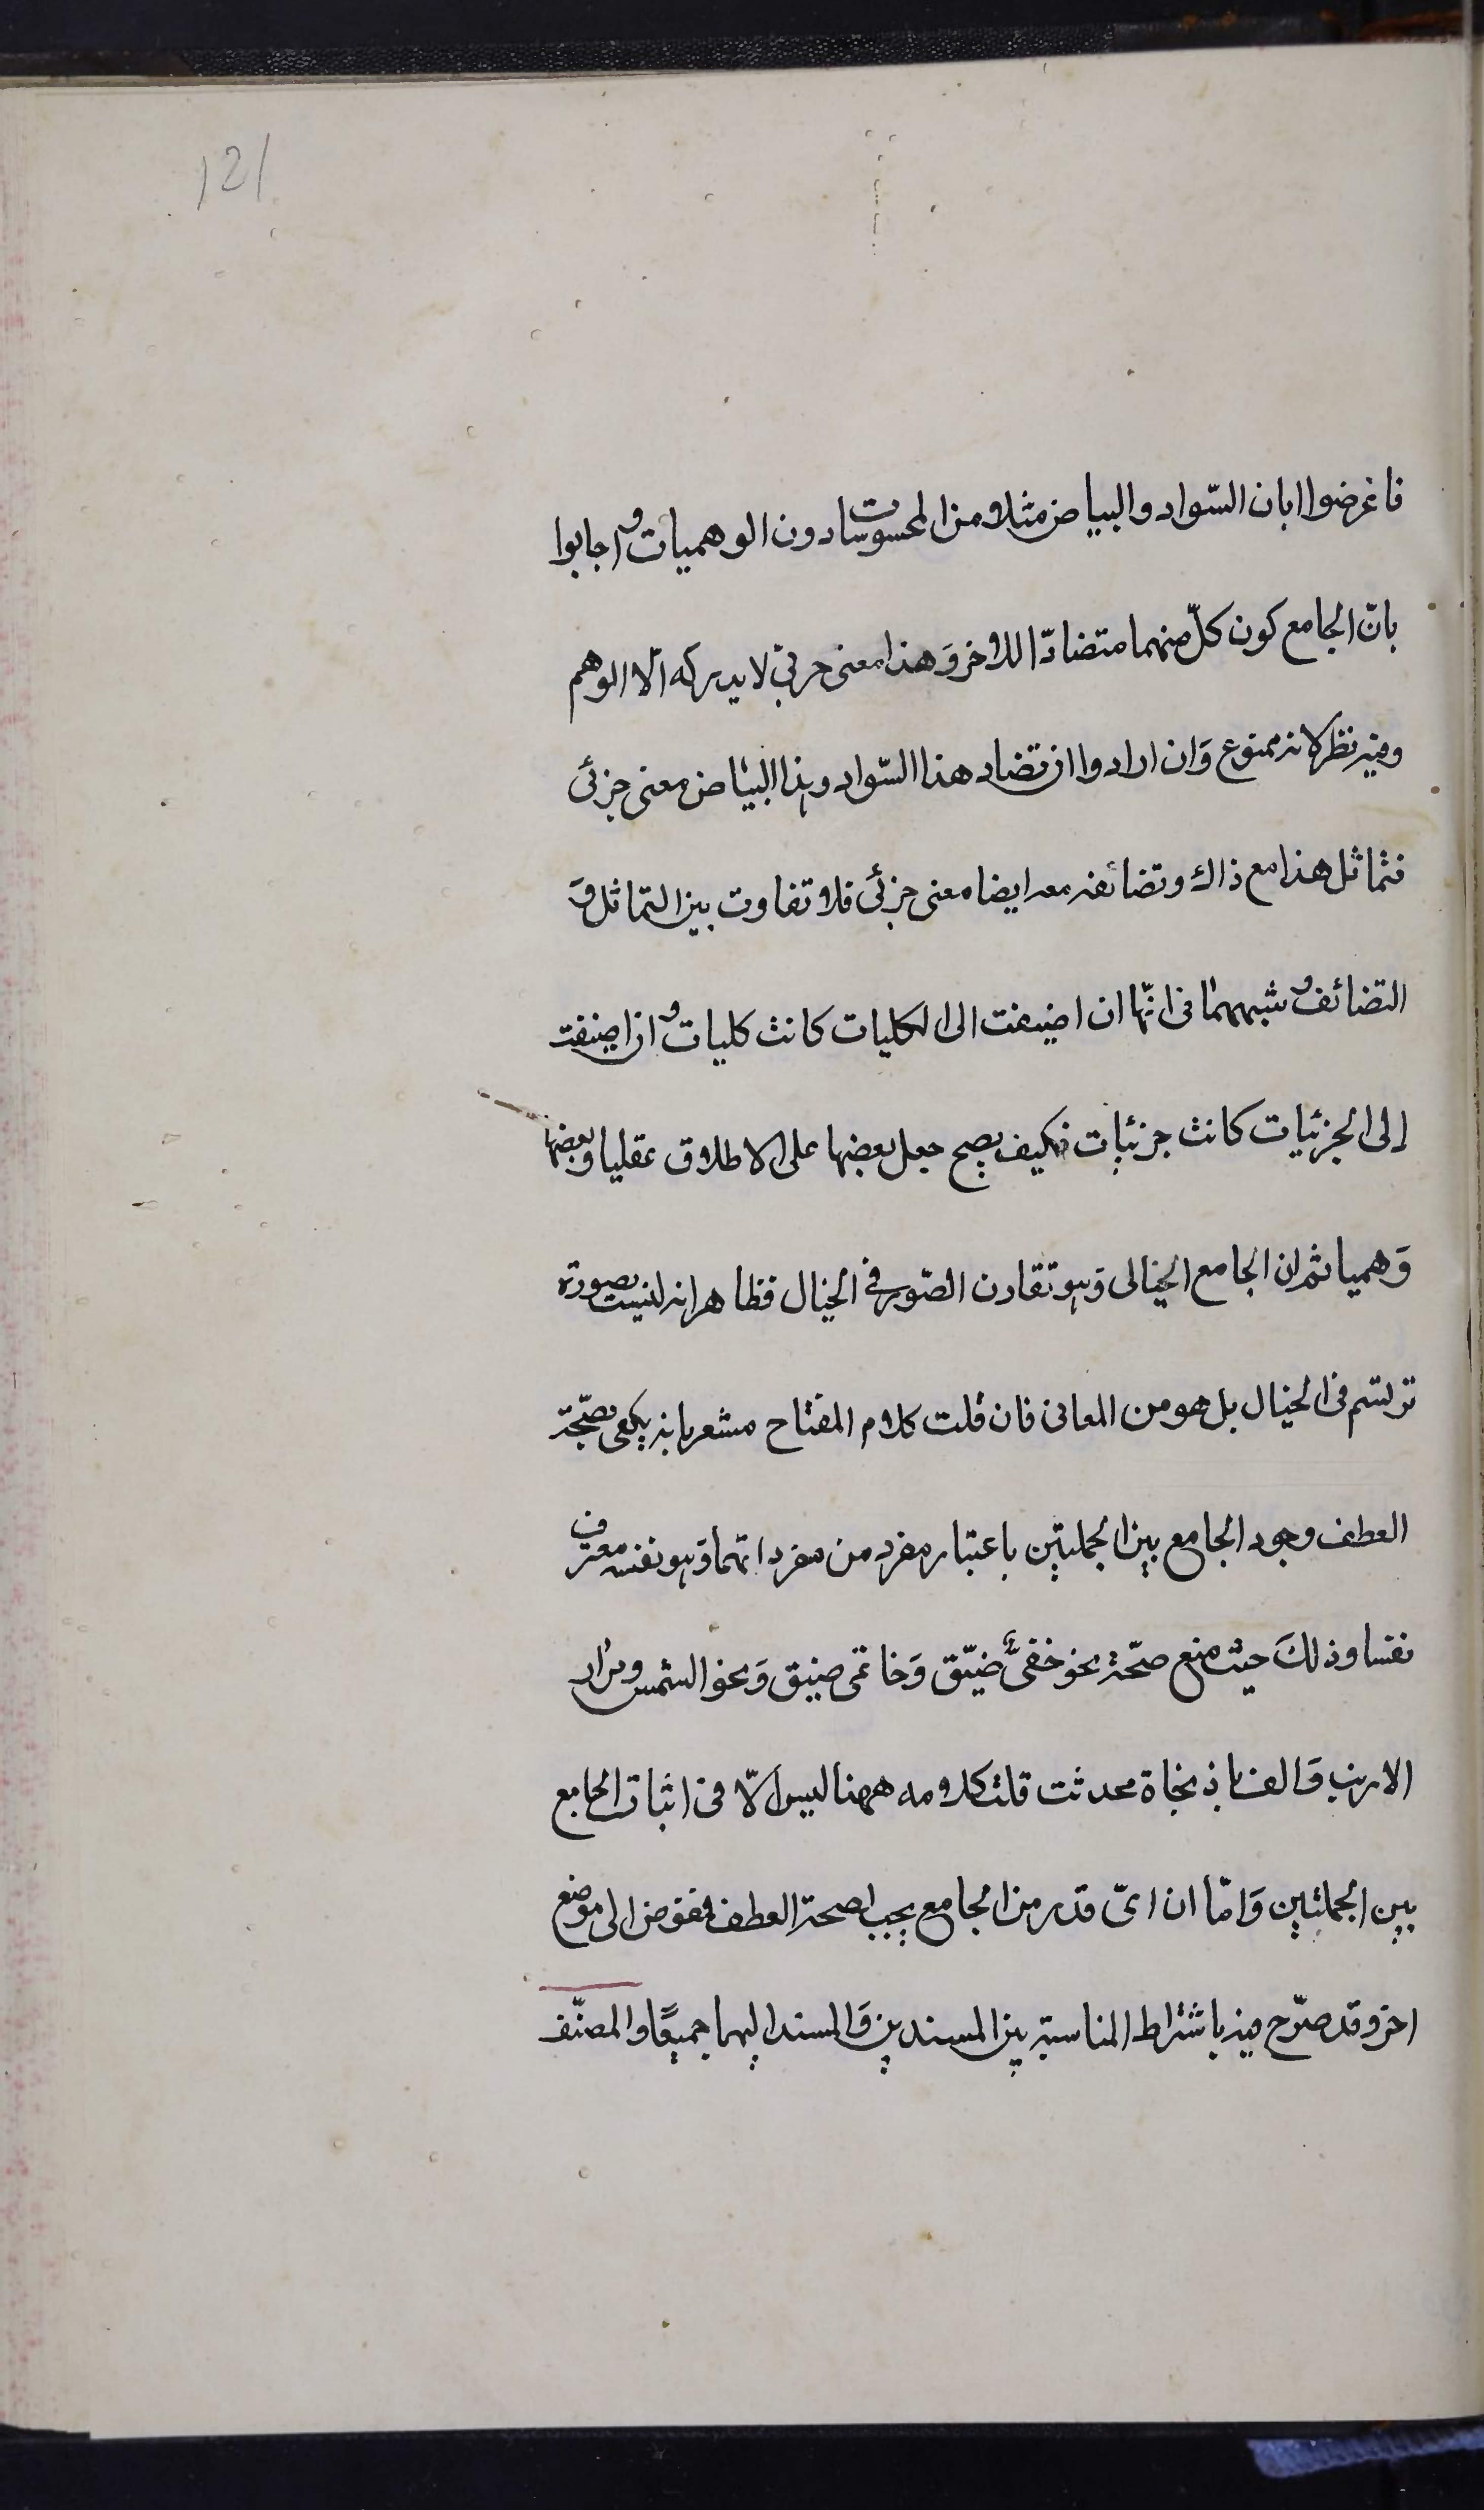 121
فاغرضوا ابان السّواد والبياض مثلا من المحسوسات دون الوهميات واجابوا
بانّ الجامع كون كلّ منهما متضادّا للاخر وَهذا معنى جرئى لا يدركه الّا الوهم
وفيه نظر لانه ممنوع وَان ارادوا ان تضاد هذا السّواد وهذا البياض معنى جزئى
فتماثل هذا مع ذاك وتضائفه معه ايضا معنى جزئى فلا تفاوت بين التماثل وَ
التضائف وشبههما فى انّها ان اضيفت الى الكليات كانت كليات وان اضيفت
إلى الجزئيات كانت جزئيات فكيف يصح جعل بعضها على الاطلاق عقليا وبعضها
وَهميا ثم ان الجامع الخيالى وَهو تقارن الصّور فى الخيال فظاهر انه ليست بصورة
ترتسم فى الخيال بل هو من المعانى فان قلت كلام المفتاح مشعر بانه يكفى لصحّة
العطف وجود الجامع بين الجملتين باعتبار مفرد من مفرداتهما وَهو نفسه معترف
نفسا وذلكَ حيث منع صحّة نحو خفىّ ضيّق وَخاتمى ضيق وَنحو الشمس ومرار
الارنب وَالف باذنجاة محدثت قلت كلامه ههنا ليس الّا فى اثبات الجامع
بين الجملتين وَامّا ان اىّ قدر من الجامع يجب لصحة العطف فمفوض الى موضع
اخر وقد صرّح فيه باشتراط المناسبة بين المسندين وَالمسند اليهما جميعًا والمصنّف